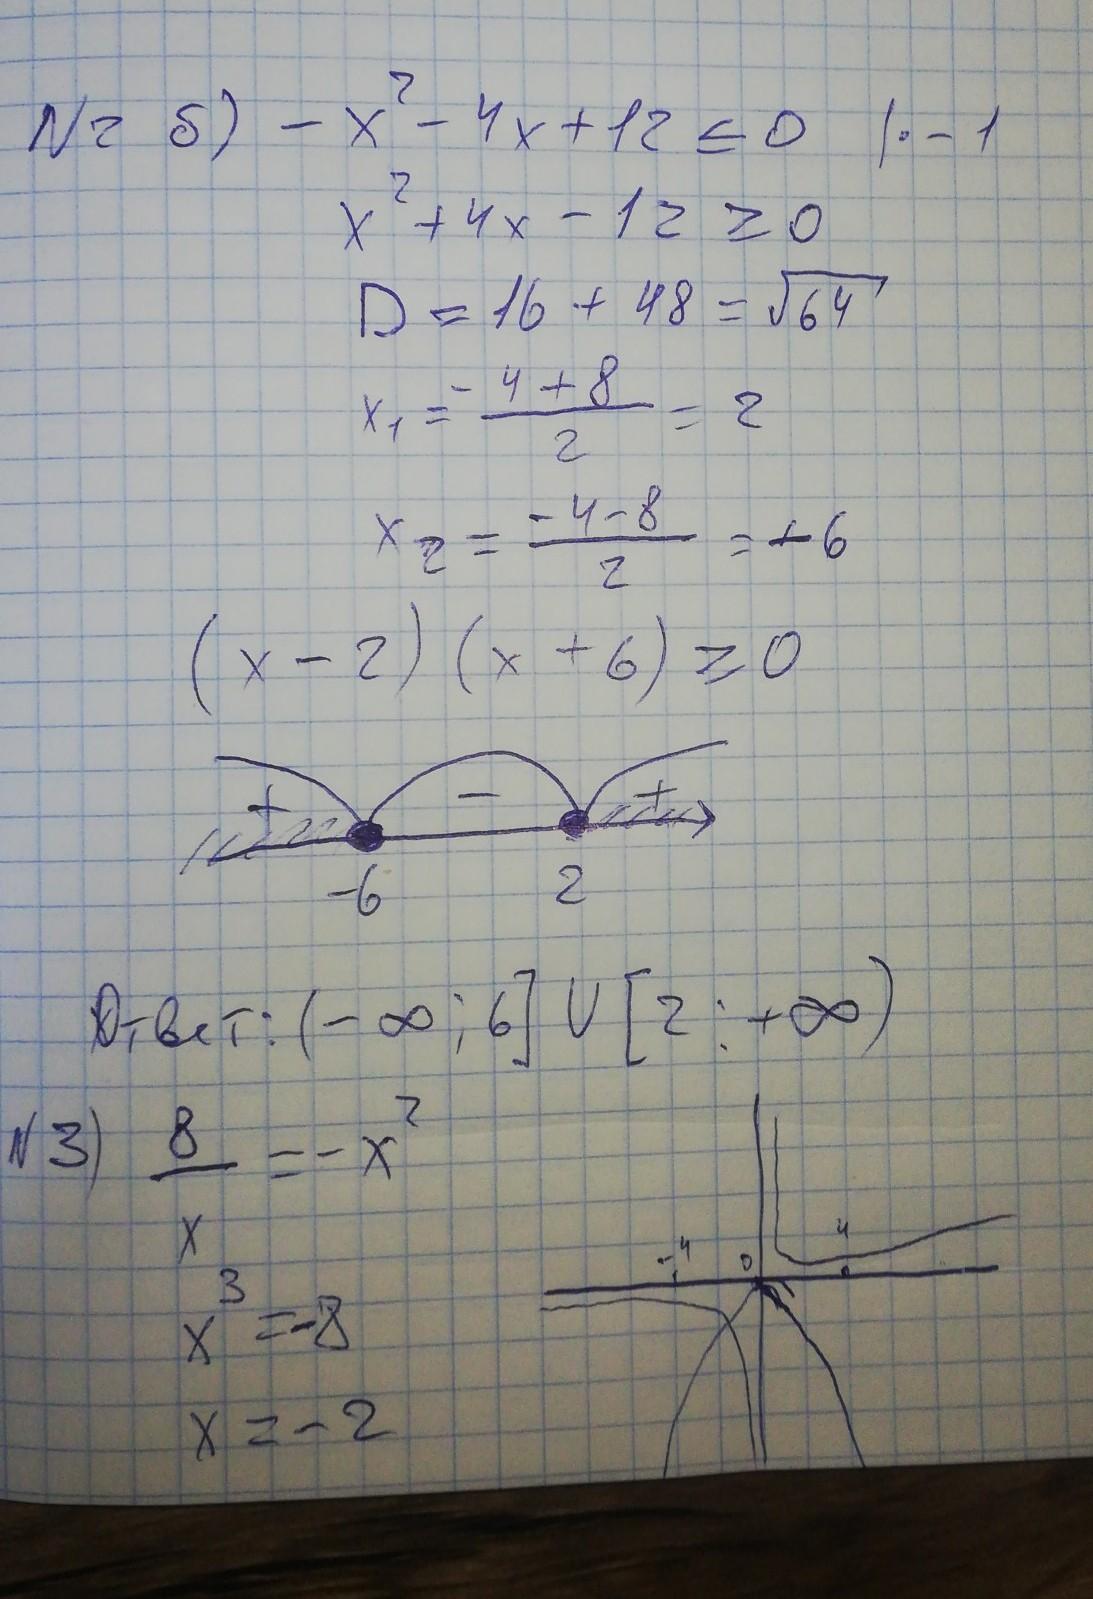 N2 б) -x² - 4x + 12 ≤ 0 |· -1
x² + 4x - 12 ≥ 0
D = 16 + 48 = √64
x₁ = (-4 + 8)/2 = 2
x₂ = (-4 - 8)/2 = -6
(x - 2) (x + 6) ≥ 0
+ - +
-6 2
Ответ: (-∞; 6] U [2; +∞)
N3) 8/x = -x²
x³ = -8
x = -2
-4 0 4